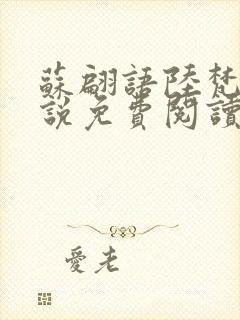 蘇翩語陸梵
說免費閱讀
愛老